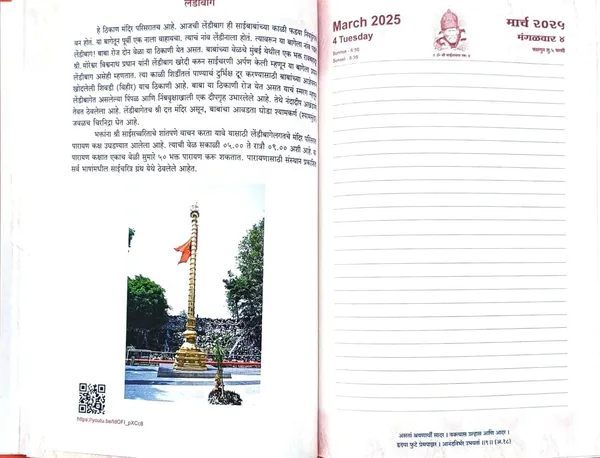 लेंडीबाग
हे ठिकाण मंदिर परिसरातच आहे. आजची लेंडीबाग ही साईबाबांच्या काळी फड्या निवडुंगाचे
बन होतं. या बागेतून पूर्वी एक नाला वाहायचा. त्याचं नांव लेंडीनाला होतं. त्यावरून या बागेला नांव पडलं
लेंडीबाग! बाबा रोज दोन वेळा या ठिकाणी येत असत. बाबांच्या वेळचे मुंबई येथील एक भक्त
श्री. मोरेश्वर विश्वनाथ प्रधान यांनी लेंडीबाग खरेदी करून साईचरणी अर्पण केली म्हणून या बागेला प्रधान
लेंडीबाग असेही म्हणतात. त्या काळी शिर्डीतलं पाण्याचं दुर्भिक्ष दूर करण्यासाठी बाबांच्या आज्ञेवरून
खोदलेली शिवडी (विहीर) याच ठिकाणी आहे. बाबा या ठिकाणी रोज येत असत याचं स्मारण म्हणून
लेंडीबागेत असलेल्या पिंपळ आणि निंबवृक्षाखाली एक दीपगृह उभारलेले आहे. तेथे नंदादीप अखंड
तेवत ठेवलेला आहे. लेंडीबागेतच श्री दत्त मंदिर असून, बाबांचा आवडता घोडा श्यामकर्ण (श्यामसुंदर)
जवळच चिरनिद्रा घेत आहे.
भक्तांना श्री साईसच्चरिताचे शांतपणे वाचन करता यावे यासाठी लेंडीबागेलगतचे मंदिर परिसरात
पारायण कक्ष उघडण्यात आलेला आहे. त्याची वेळ सकाळी ०५.०० ते रात्री ०९.०० अशी आहे. या
पारायण कक्षात एकाच वेळी सुमारे ५० भक्त पारायण करू शकतात. पारायणासाठी संस्थान प्रकाशित
सर्व भाषांमधील साईचरित्र ग्रंथ येथे ठेवलेले आहेत.
https://youtu.be/tdOFl_pXCc8
March 2025
4 Tuesday
मार्च २०२५
मंगळवार ४
फाल्गुन शु.५ षष्ठी